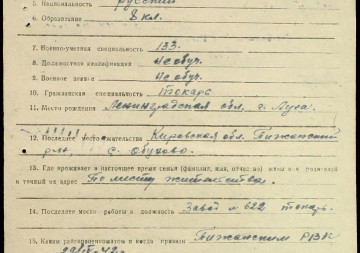 5. Национальность русский
6. Образование 8 кл.
7. Военно-учетная специальность 133.
8. Должностная квалификация не обуч.
9. Военное звание не обуч.
10. Гражданская специальность токарь
11. Место рождения Ленинградская обл. г. Луга.
12. Последнее место жительства Кировская обл. Пижанский
р-он, с. Обухово.
13. Где проживает в настоящее время семья (фамилия, имя, отчество) жены или родителей
и точный их адрес По месту жительства.
14. Последнее место работы и должность Завод № 622 токарь.
15. Каким райвоенкоматом и когда призван Пижанским РВК